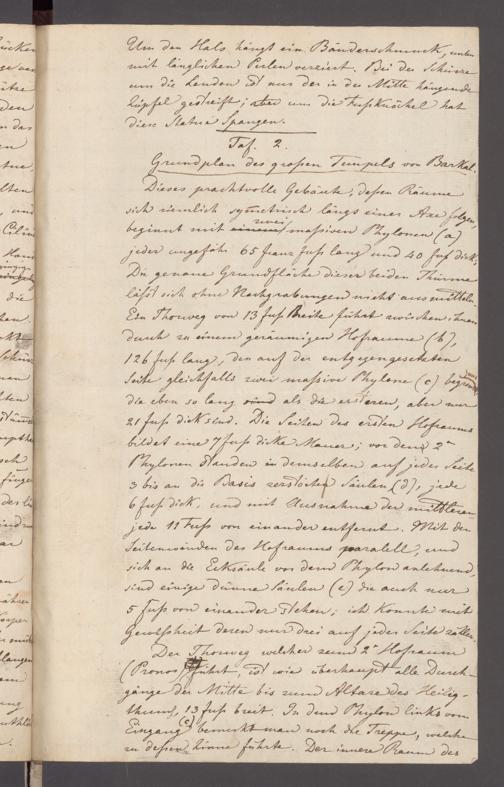 Um den Hals hängt ein Bänderschmuck, unten
mit länglichen Perlen verziert. Bei der Schürze
um die Lenden ist nur der in der Mitte hängende
Zipfel gestreift; aber um die Fußknöchel hat
diese Statue Spangen.
Taf. 2.
Grundplan des großen Tempels von Barkal.
Dieses prachtvolle Gebäude, deßen Räume
sich ziemlich symetrisch längs einer Axe folgen,
beginnt mit zwei massiven Phylonen (a)
jeder ungefähr 65 franz fuß lang und 40 fuß dick.
Die genaue Grundfläche dieser beiden Thürme
läßt sich ohne Nachgrabungen nicht ausmitteln.
Ein Thorweg von 13 fuß Breite führt zwischen ihnen
durch zu einem geräumigen Hofraume (b),
126 fuß lang, den auf der entgegengesetzten
Seite gleichfalls zwei massive Phylone (c) begrenzen
die eben so lang als die ersteren, aber nur
21 fuß dick sind. Die Seiten des ersten Hofraums
bildet eine 7 fuß dicke Mauer; vor dem 2n
Phylonen standen in demselben auf jeder Seite
3 bis an die Basis zerstörten Säulen (d), jede
6 fuß dick, und mit Ausnahme der mittleren
jede 11 Fuß von einander entfernt. Mit den
Seitenwänden des Hofraums paralell, und
sich an die Ecksäule vor dem Phylon anlehnend,
sind einige dünne Säulen (e) die auch nur
5 fuß von einander stehen; ich konnte mit
Gewißheit deren nur drei auf jeder Seite zählen.
Der Thorweg welcher zum 2n Hofraum
(Pronos) führt, ist wie überhaupt alle Durch-
gänge der Mitte bis zum Altare des Heilig-
thums, 13 fuß breit. In dem Phylon links vom
Eingang (c) bemerkt man noch die Treppe, welche
zu deßen Zinne führte. Der innere Raum des